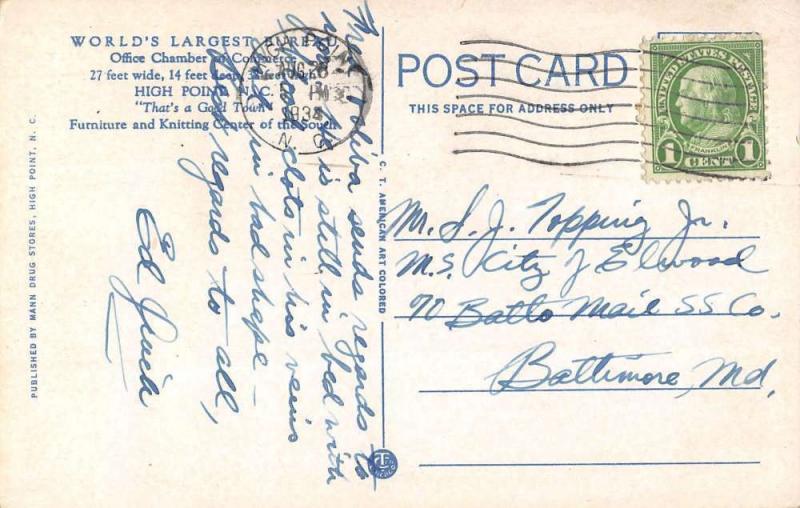 WORLD'S LARGEST BUREAU
Office Chamber of Commerce
27 feet wide, 14 feet deep, 32 feet high
HIGH POINT, N. C.
"That's a Good Town"
Furniture and Knitting Center of the South
HIGH POINT
AUG
1934
N. C.
POST CARD
THIS SPACE FOR ADDRESS ONLY
UNITED STATES POSTAGE
FRANKLIN
1 CENT 1
PUBLISHED BY MANN DRUG STORES, HIGH POINT, N. C.
C. T. AMERICAN ART COLORED
sends regards to
is still in bed with
clots in his veins
in bad shape –
regards to all,
Ed
Mr. S. J. Topping Jr.
M.S. City of Elwood
% Balto Mail SS Co.
Baltimore, Md.